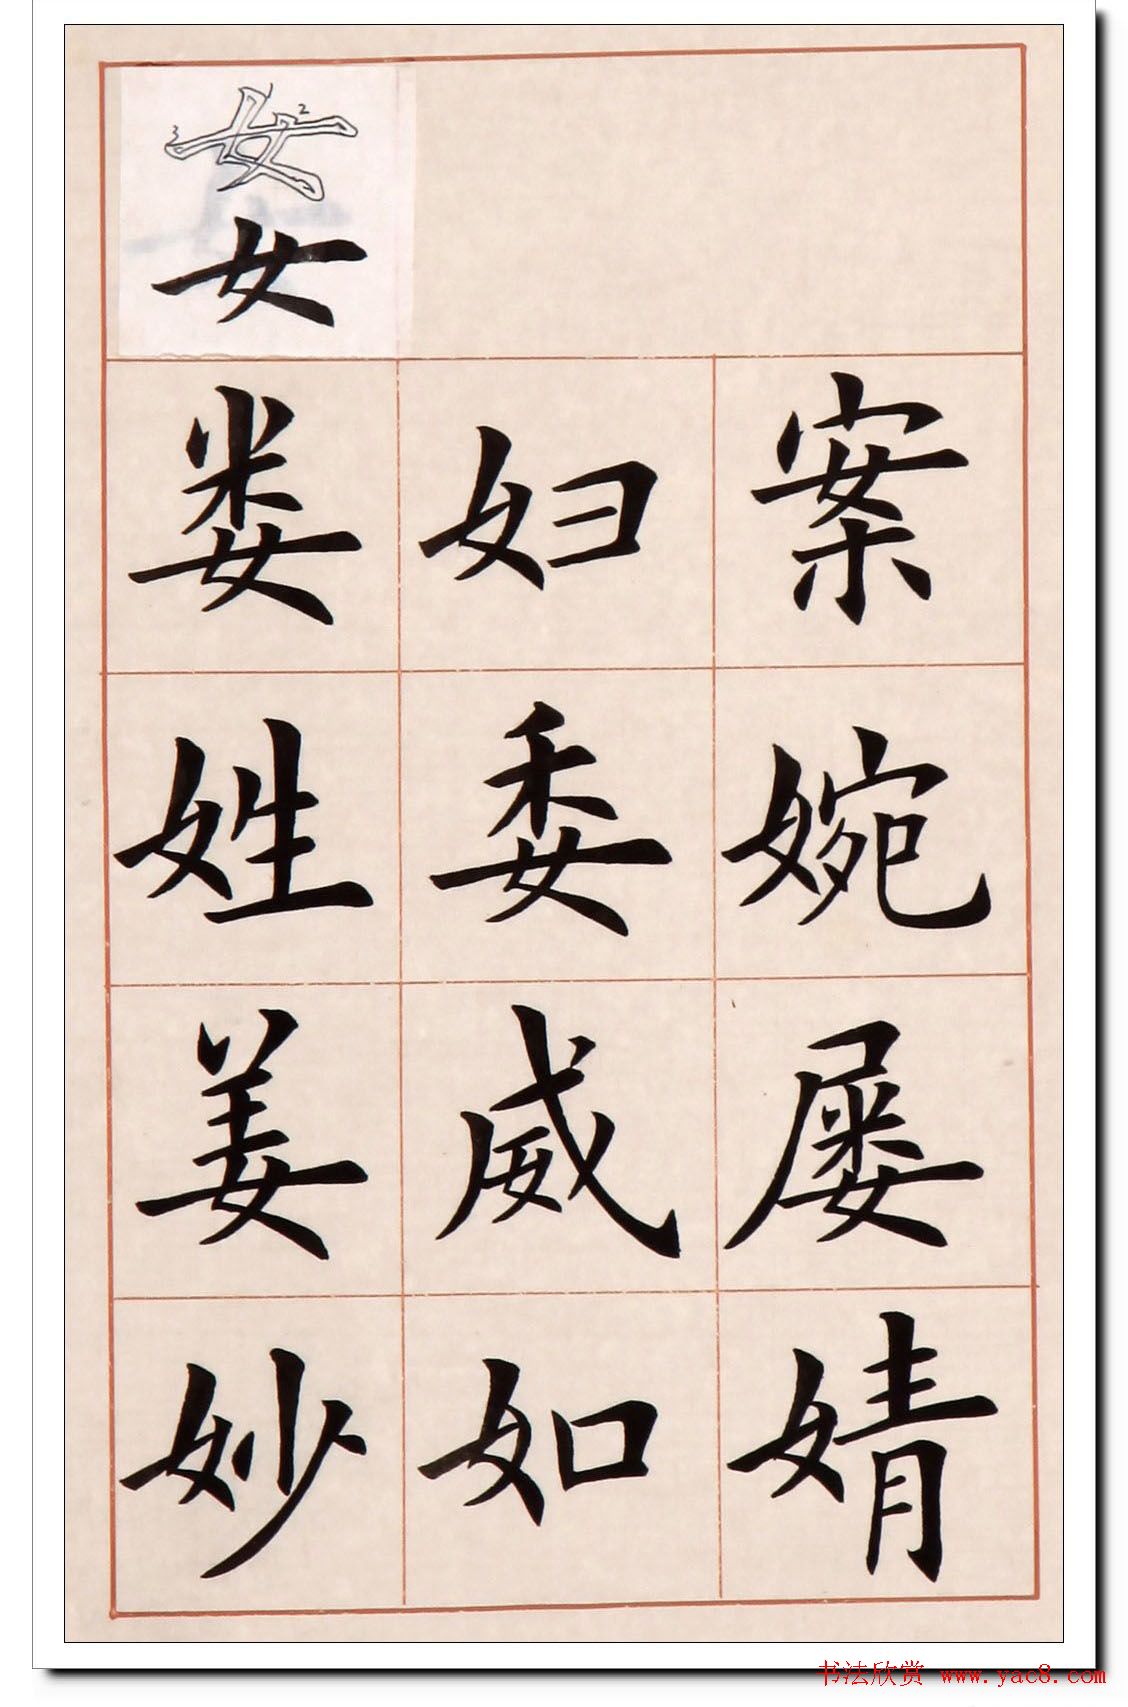 女
女
娄 妇 案
姓 委 婉
姜 威 屡
妙 如 婧
书法欣赏 www.yac8.com